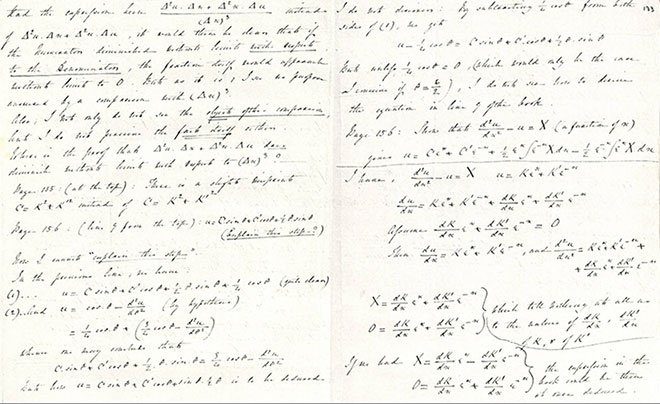 Had the expression been Δ²u.Δn + Δ²u.Δu instead
of Δ²u.Δn + Δ²u.Δu, it would then be clear that if
the Numerator diminished without limit with respect
to the Denominator, the fraction itself would approach
without limit to 0. But as it is; I see no purpose
answered by a comparison with (Δu)³.
Also, I not only do not see the object of the comparison,
but I do not perceive the fact itself either.
Where is the proof that Δ²u.Δn + Δ²u.Δu does
diminish without limit with respect to (Δn)³?
Page 155: (at the top): There is a slight misprint
C = K² + K'² instead of C = K² + K'
Page 156. (line 9 from the top): u = C sin θ + C' cos θ + ½ θ. sin θ
(Explain this step?)
Now I cannot "explain this step".
In the previous line, we have:
(1)... u = C sin θ + C' cos θ + ½ θ. sin θ + ¼ cos θ (quite clear)
(2)...And u = cos θ - d²u/dθ² (by hypothesis)
= ¼ cos θ + (¾ cos θ - d²u/dθ²)
whence one may conclude that
C sin θ + C' cos θ + ½ θ. sin θ = ¾ cos θ - d²u/dθ²
But how u = C sin θ + C' cos θ + ½ θ. sin θ is to be deduced
133
I do not discover: By subtracting ¼ cos θ from both
sides of (1), we get
u - ¼ cos θ = C sin θ + C' cos θ + ½ θ. sin θ
But unless ¼ cos θ = 0 (which would only be the case
I conceive if θ = π/2), I do not see how to deduce
the equation in line 9 of the book.
Page 156: Show that d²u/dx² - u = X (a function of x)
gives u = Cεˣ + C'ε⁻ˣ + ½ εˣ∫ε⁻ˣX dx - ½ ε⁻ˣ∫εˣX dx
I have, d²u/dx² - u = X u = Kεˣ + K'ε⁻ˣ
du/dx = Kεˣ - K'ε⁻ˣ + dK/dx εˣ + dK'/dx ε⁻ˣ
Assume dK/dx εˣ + dK'/dx ε⁻ˣ = 0
Then du/dx = Kεˣ - K'ε⁻ˣ, and d²u/dx² = Kεˣ + K'ε⁻ˣ +
+ dK/dx εˣ - dK'/dx ε⁻ˣ
X = dK/dx εˣ + dK'/dx ε⁻ˣ
0 = dK/dx εˣ + dK'/dx ε⁻ˣ
which tell nothing at all as
to the nature of dK/dx, dK'/dx
of K, & of K'
If we had X = dK/dx εˣ - dK'/dx ε⁻ˣ
0 = dK/dx εˣ + dK'/dx ε⁻ˣ
the expression in the
book could be then
at once deduced.